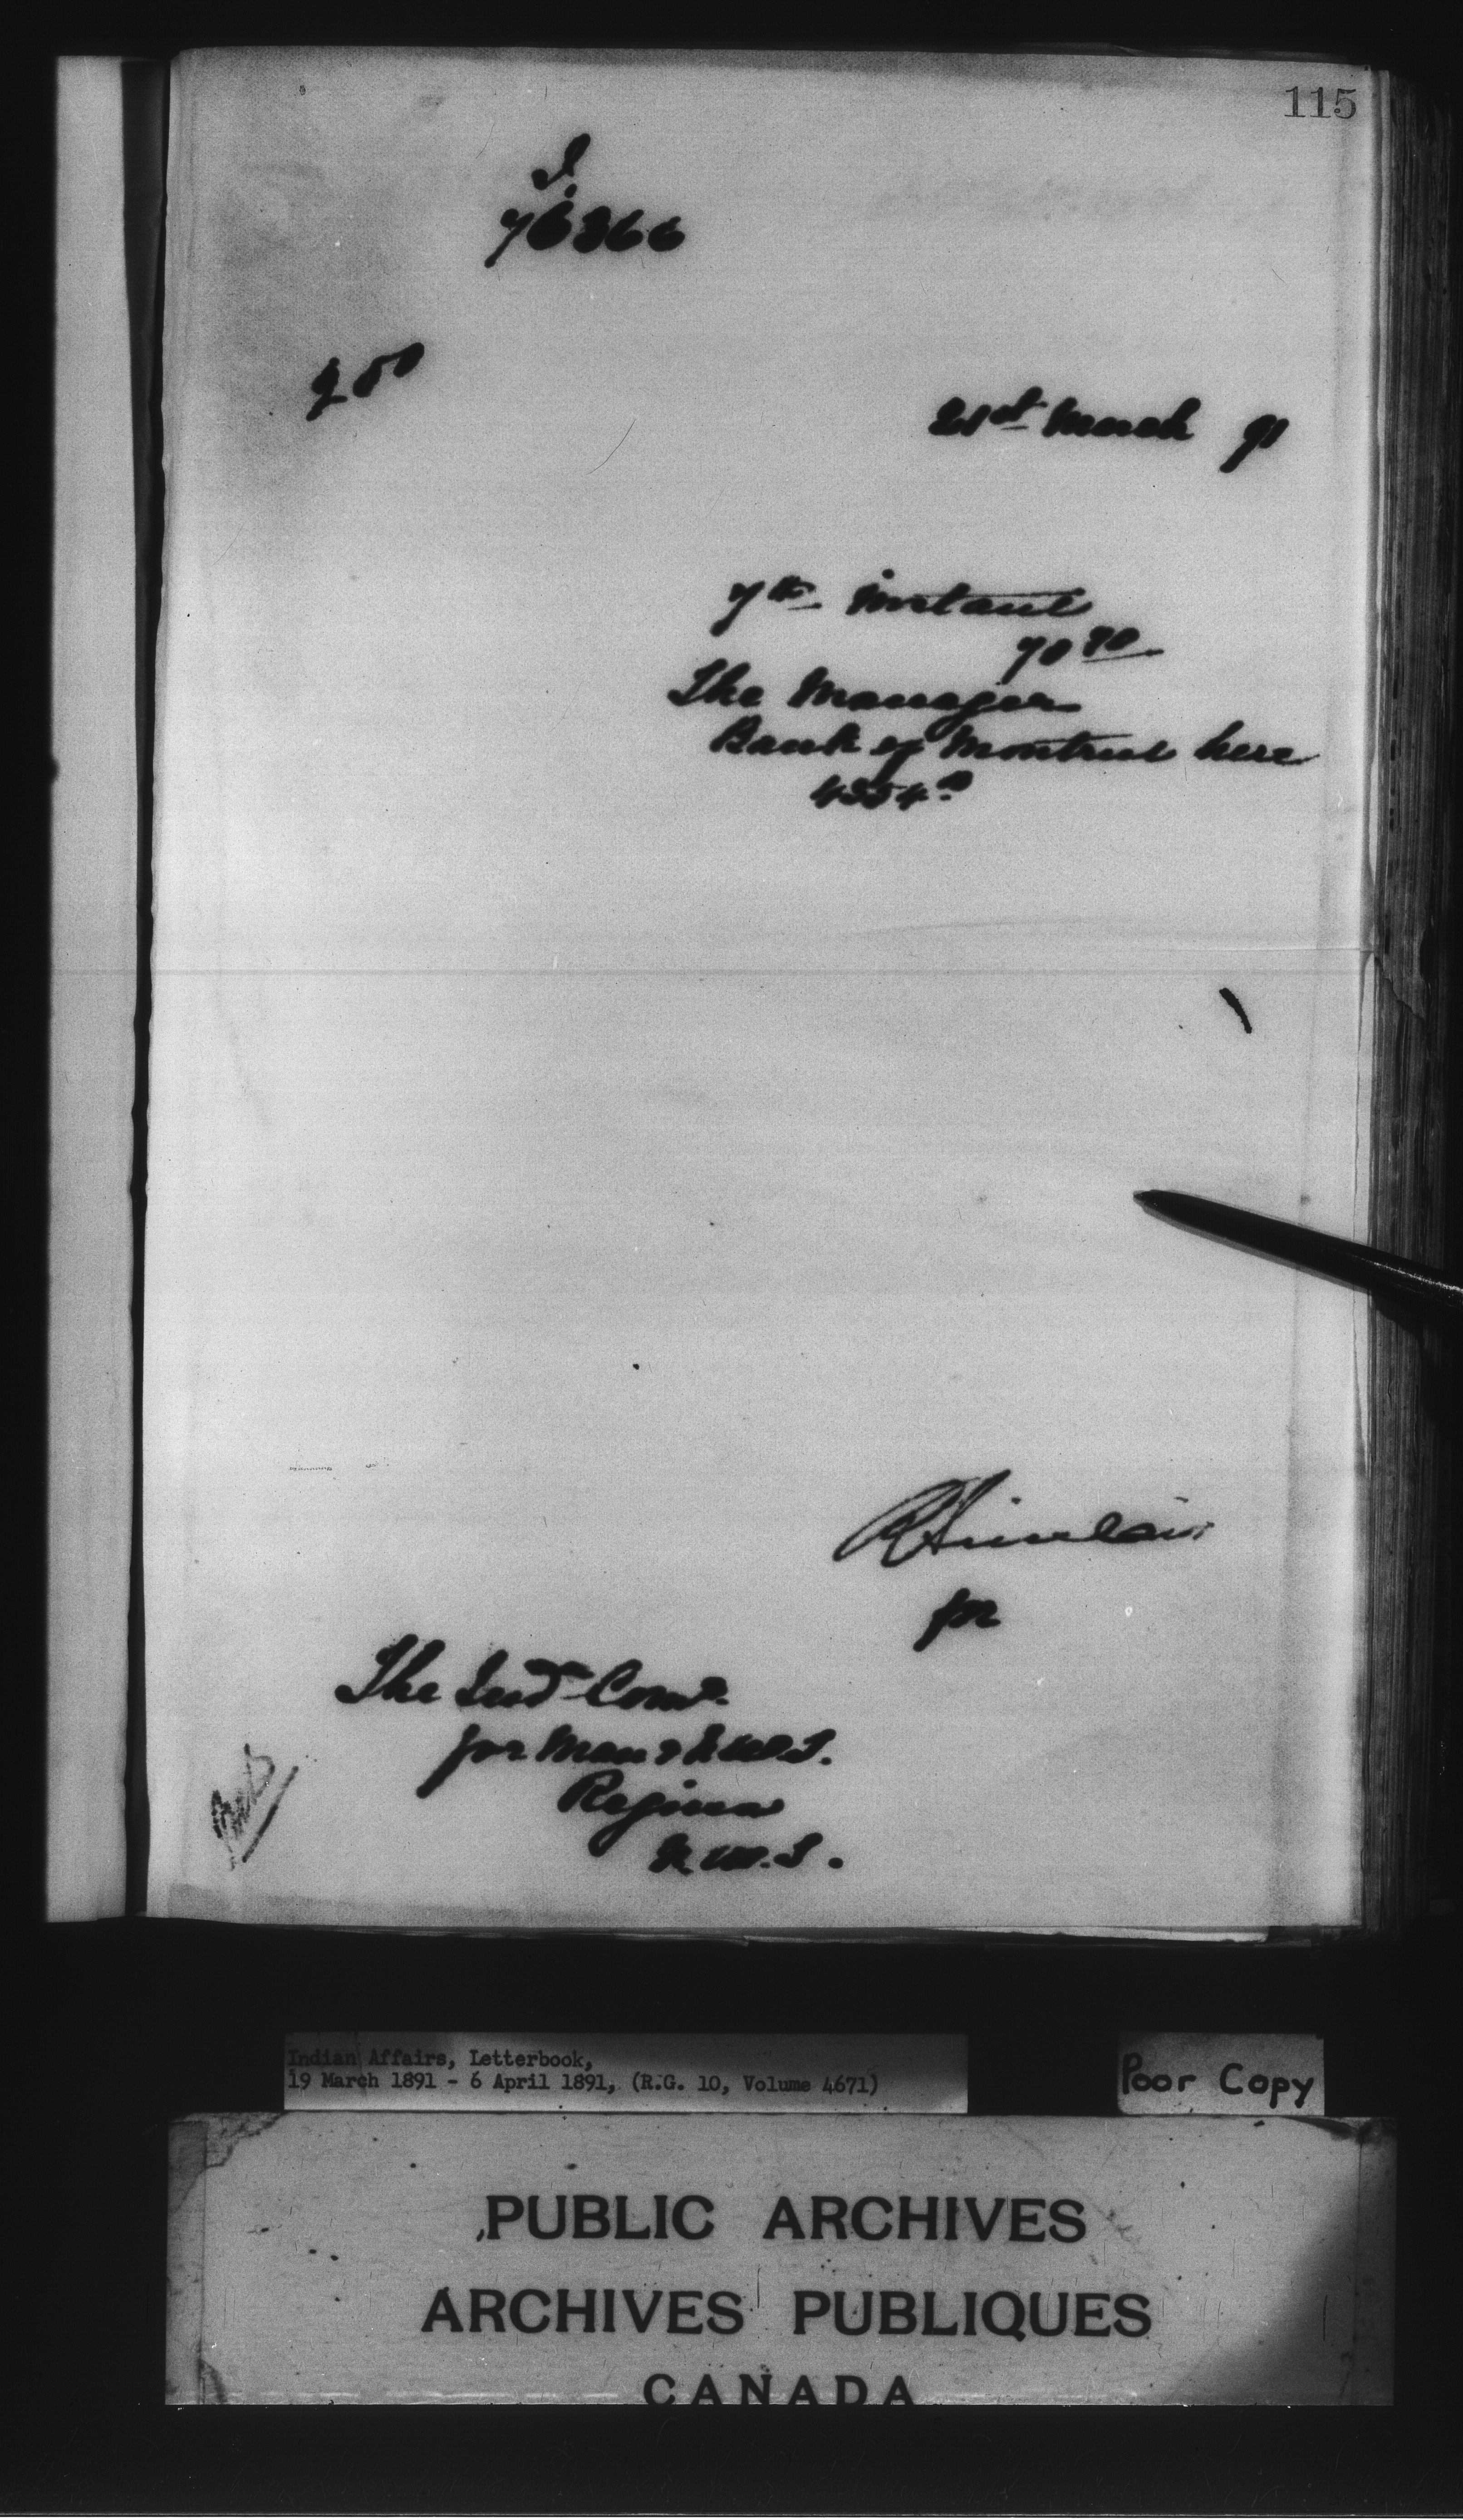 115
I.
76366
21st March 91
7th instant
70 70
The Manager
Bank of Montreal here
RSinclair
for
The Ind. Comr.
for Man & N.W.T.
Regina
N.W.T.
Indian Affairs, Letterbook,
19 March 1891 - 6 April 1891, (R.G. 10, Volume 4671)
Poor Copy
PUBLIC ARCHIVES
ARCHIVES PUBLIQUES
CANADA